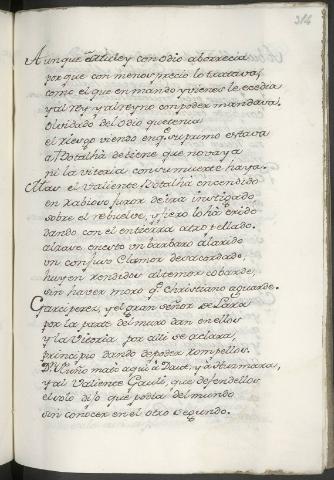 314
Aunque à Muley con odio aborrecia
por que con menos precio lo tratava,
como el que en mando y vienes le ecedia
y al rey y al reyno con poder mandava,
olvidado del odio que tenia
el riesgo viendo en q.e su primo estava
a Botalhà detiene que no vaya
ni la vitoria con su muerte haya.
Mas el valiente Botalhà encendido
en rabioso furor de ira instigado
sobre el rebuelve, y fiero lo hà erido
dando con el en tierra atropellado.
alzase en esto un barbaro alarido
un confuso clamor desacordado,
huyen rendidos al temor cobarde,
sin haver moro q.e Christiano aguarde.
Garciperez, y el gran señor de Lara
por la parte del muro dan en ellos
y la Vitoria por alli se aclara,
principio dando de poder rompellos.
D.n Nuño matò aqui à Daut, y à
y al valiente que defendellos
el solo dijo que podia del mundo
sin conocer en el otro segundo.